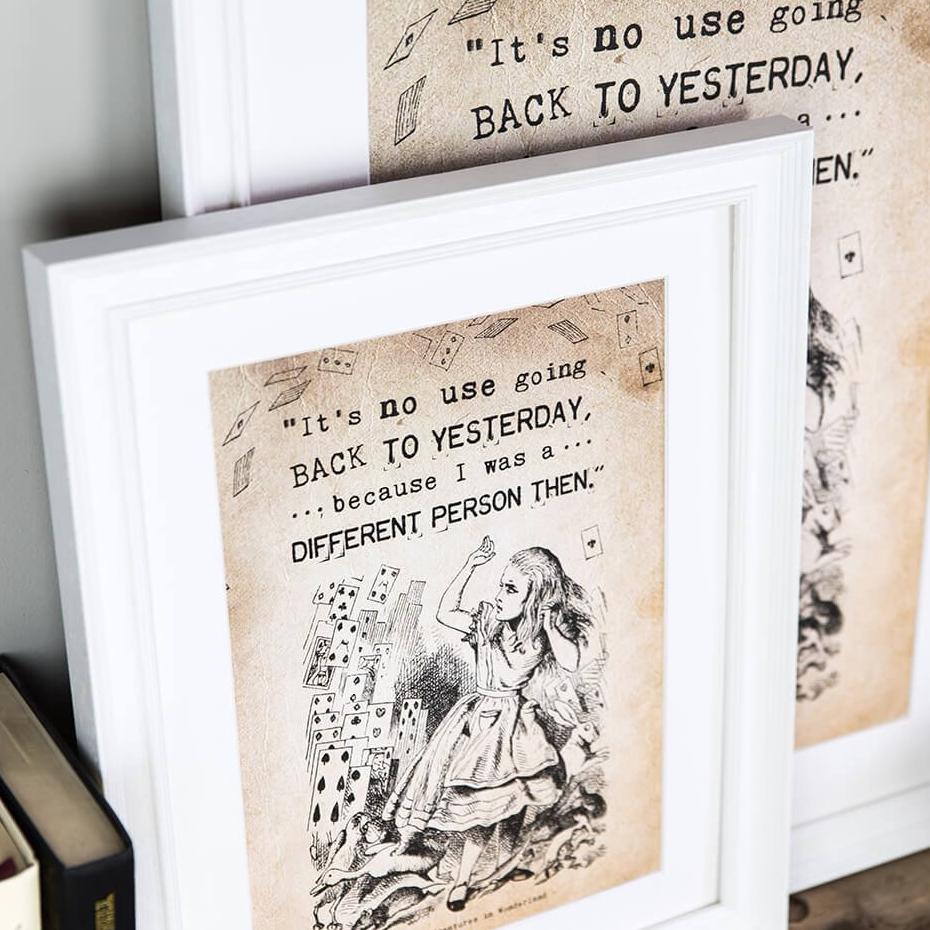 "It's no use going
BACK TO YESTERDAY,
a...
"It's no use going
BACK TO YESTERDAY,
...because I was a...
DIFFERENT PERSON THEN."
in Wonderland